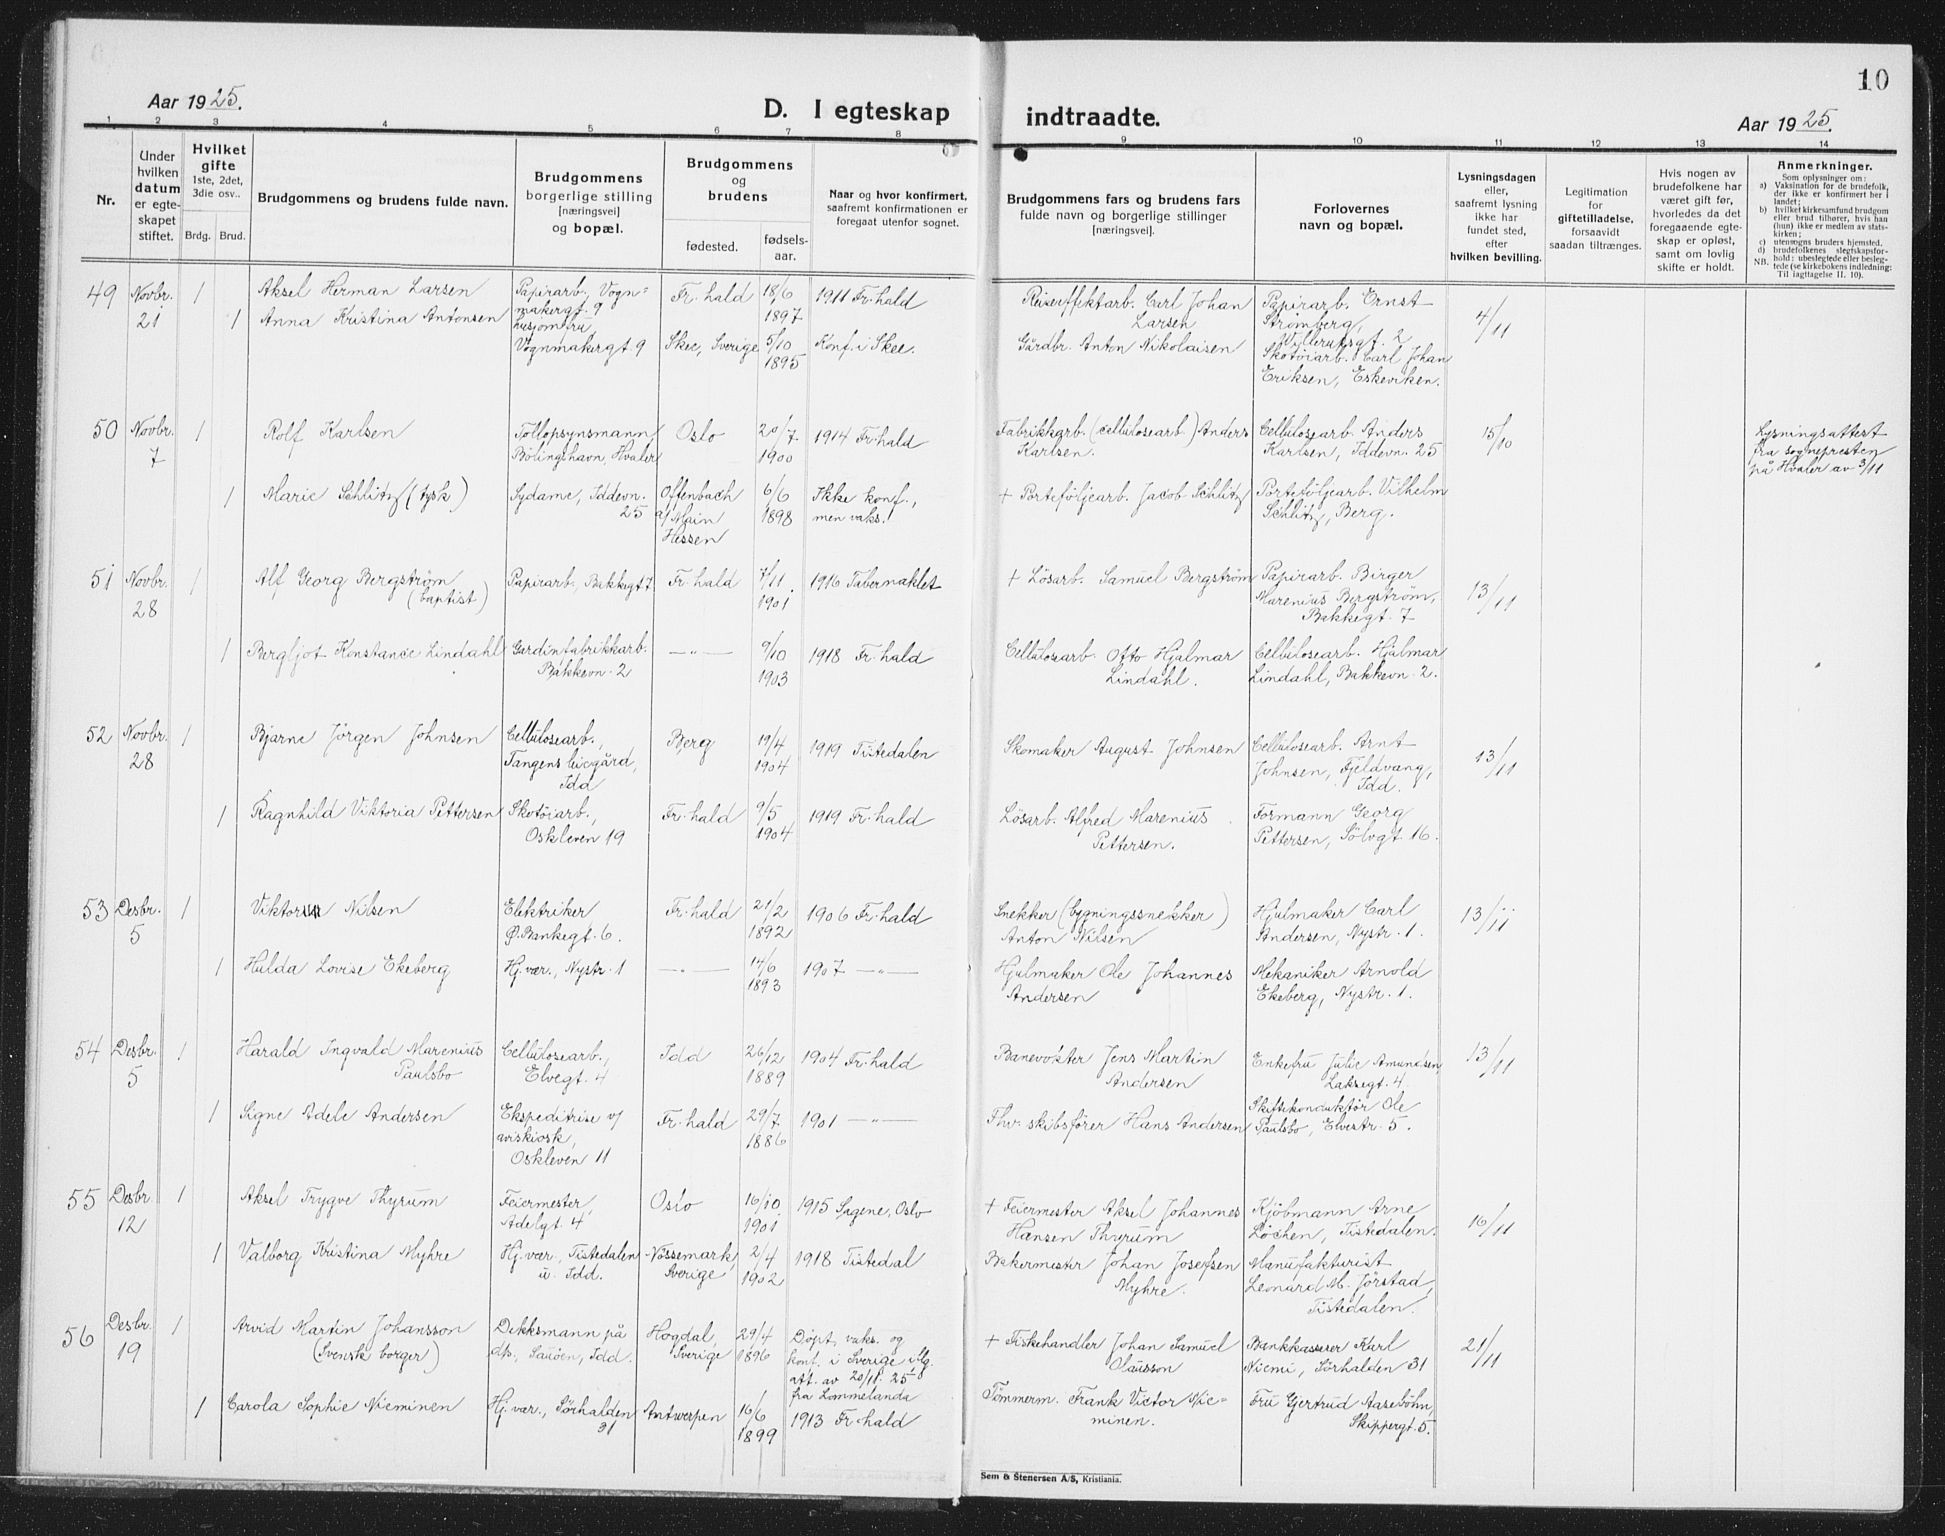 10
Aar 1925.
D. I egteskap
indtraadte.
Aar 1925.
1 2 3 4 5 6 7 8 9 10 11 12 13 14
Nr.
Under
hvilken
datum
er egte-
skapet
stiftet.
Hvilket
gifte
1ste, 2det,
3die osv..
Brdg. Brud.
Brudgommens og brudens fulde navn.
Brudgommens
borgerlige stilling
[næringsvei]
og bopæl.
Brudgommens
og
brudens
fødested.
fødsels-
aar.
Naar og hvor konfirmert,
saafremt konfirmationen er
foregaat utenfor sognet.
Brudgommens fars og brudens fars
fulde navn og borgerlige stillinger
[næringsvei].
Forlovernes
navn og bopæl.
Lysningsdagen
eller,
saafremt lysning
ikke har
fundet sted,
efter
hvilken bevilling.
Legitimation
for
giftetilladelse,
forsaavidt
saadan tiltrænges.
Hvis nogen av
brudefolkene har
været gift før,
hvorledes da det
foregaaende egte-
skap er opløst,
samt om lovlig
skifte er holdt.
Anmerkninger.
Som oplysninger om:
a) Vaksination for de brudefolk,
der ikke er konfirmert her i
landet;
b) hvilket kirkesamfund brudgom
eller brud tilhører, hvis han
(hun) ikke er medlem av stats-
kirken;
c) utensogns bruders hjemsted.
d) brudefolkenes slegtskapsfor-
hold: ubeslegtede eller besleg-
tede (se kirkebokens indledning:
NB. Til iagttagelse II. 10).
49 Novbr. 21
1 Aksel Herman Larsen
Papirarb., Vogn-
makergt. 9
Fr.hald 18/6 1897
1911 Fr.hald
Reiseeffektarb. Carl Johan
Larsen
Papirarb. Ernst
Strømberg,
Villerutsgt. 2
4/11
1 Anna Kristina Antonsen
husjomfru
Vognmakergt. 9
Skee, Sverige 5/10 1895
Konf. i Skee.
Gårdbr. Anton Nikolaisen
Skotøiarb. Carl Johan
Eriksen, Eskeviken.
50 Novbr. 7
1 Rolf Karlsen
Tollopsynsmann,
Bølingshavn, Hvaler
Oslo 20/7 1900
1914 Fr.hald
Fabrikkarb. (cellulosearb.) Anders
Karlsen.
Cellulosearb. Anders
Karlsen, Iddevn. 25
15/10
Lysningsattest
fra sognepresten
på Hvaler av 3/11
1 Marie Schlitz (tysk)
Sydame, Iddevn.
25
Offenbach
a/Main
Hessen
6/6 1898
Ikke konf.,
men vaks.
+ Porteføljearb. Jacob Schlitz
Porteføljearb. Vilhelm
Schlitz, Berg.
51 Novbr. 28
1 Alf Georg Bergstrøm
(baptist)
Papirarb., Bakkegt 7
Fr.hald 7/11 1901
1916 Tabernaklet
+ Løsarb. Samuel Bergstrøm
Papirarb. Birger
Marenius Bergstrøm,
Bakkegt. 7
13/11
1 Bergljot Konstance Lindahl
Gardinfabrikkarb.
Bakkevn. 2
—„— 9/10 1903
1918 Fr.hald
Cellulosearb. Otto Hjalmar
Lindahl.
Cellulosearb. Hjalmar
Lindahl, Bakkevn. 2.
52 Novbr. 28
1 Bjarne Jørgen Johnsen
Cellulosearb.,
Idd
Berg 19/4 1904
1919 Tistedalen
Skomaker August Johnsen
Cellulosearb. Arnt
Johnsen, Fjeldvang,
Idd.
13/11
1 Ragnhild Viktoria Pettersen
Skotøiarb.,
Oskleven 19
Fr.hald 9/5 1904
1919 Fr.hald
Løsarb. Alfred Marenius
Pettersen.
Formann Georg
Pettersen, Sølvgt. 16.
53 Desbr. 5
1 Nilsen
Elektriker
Ø. Bankegt. 6.
Fr.hald 21/2 1892
1906 Fr.hald
Snekker (bygningssnekker)
Anton Nilsen
Hjulmaker Carl
Andersen, Nystr. 1.
13/11
1 Hulda Lovise Ekeberg
Hj.vær., Nystr. 1
—„— 14/6 1893
1907 —„—
Hjulmaker Ole Johannes
Andersen
Mekaniker Arnold
Ekeberg, Nystr. 1.
54 Desbr. 5
1 Harald Ingvald Marenius
Paulsbo
Cellulosearb.,
Elvegt. 4
Idd 26/12 1889
1904 Fr.hald
Banevokter Jens Martin
Andersen
Enkefru Julie Amundsen
Laksegt. 4
13/11
1 Signe Adele Andersen
Ekspeditrise v/
aviskiosk,
Oskleven 11
Fr.hald 29/7 1886
1901 —„—
Fhv. skibsfører Hans Andersen
Skiftekonduktør Ole
Paulsbo, Elvestr. 5.
55 Desbr. 12
1 Aksel Trygve Thyrum
Feiermester,
Adelgt. 4
Oslo 16/10 1901
1915 Sagene, Oslo
+ Feiermester Aksel Johannes
Hansen Thyrum
Kjøbmann Arne
Løchen, Tistedalen.
16/11
1 Valborg Kristina Myhre
Hj.vær., Tistedalen
u. Idd.
Nøssemark,
Sverige
2/4 1902
1918 Tistedal
Bakermester Johan Josefsen
Myhre.
Manufakturist
Leonard M. Jørstad,
Tistedalen.
56 Desbr. 19
1 Arvid Martin Johansson
(Svensk borger)
Dekksmann på
Sauøen, Idd.
Hogdal,
Sverige
29/4 1896
Døpt, vaks. og
konf. i Sverige
att. av 20/11. 25
fra Lommelanda
+ Fiskehandler Johan Samuel
Olausson
Bankkasserer Karl
Niemi, Sørhalden 31
21/11
1 Carola Sophie Nieminen
Hj.vær., Sørhalden
31
Antwerpen 16/6 1899
1913 Fr.hald
Tømmerm. Frank Victor Nie-
minen.
Fru Gjertrud Aasebøhn,
Skippergt. 5.
Sem & Stenersen A/S, Kristiania.